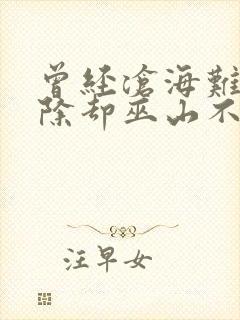 曾經滄海難
除却巫山不
汪早女